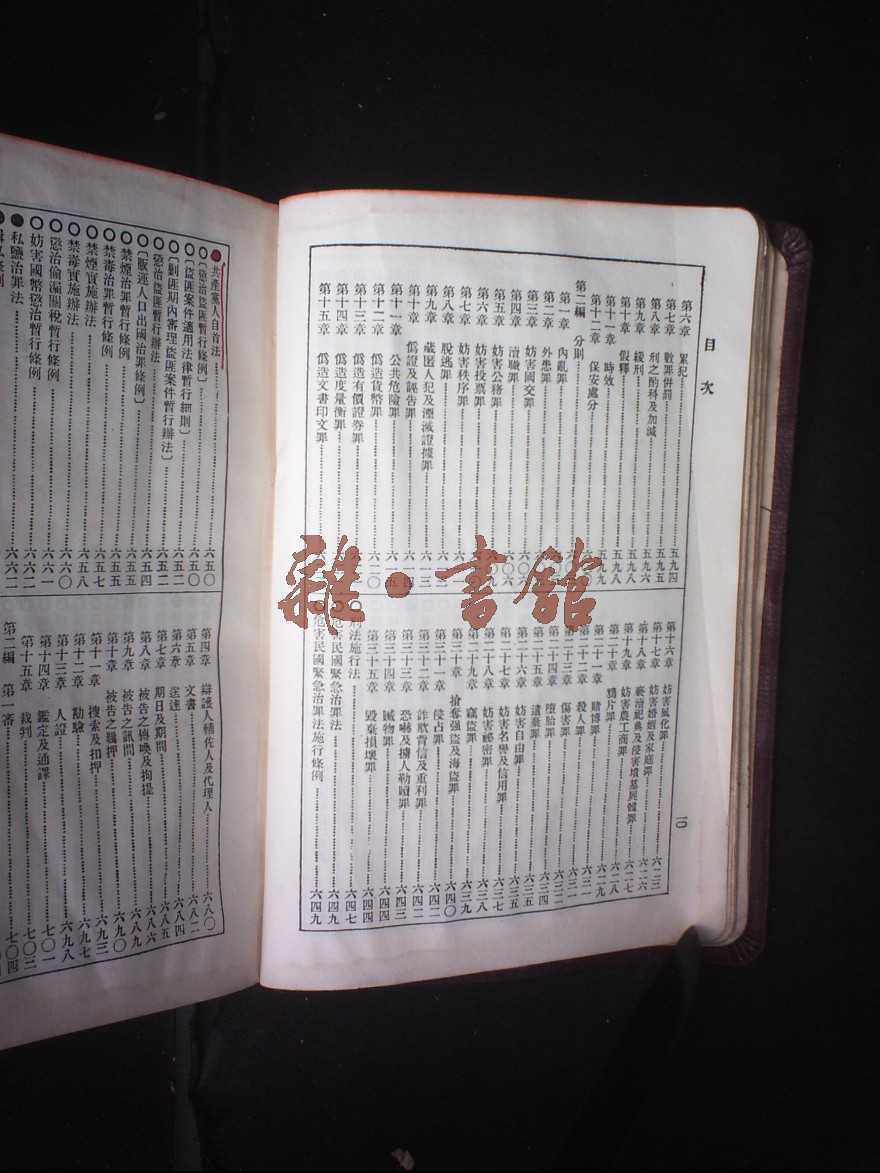 目次
第六章 累犯 五九四
第七章 數罪併罰 五九五
第八章 刑之酌科及加減 五九六
第九章 緩刑 五九八
第十章 假釋 五九八
第十一章 時效 五九九
第十二章 保安處分
第二編 分則
第一章 內亂罪
第二章 外患罪
第三章 妨害國交罪
第四章 瀆職罪
第五章 妨害公務罪
第六章 妨害投票罪
第七章 妨害秩序罪
第八章 脫逃罪
第九章 藏匿人犯及湮滅證據罪 六一三
第十章 僞證及誣告罪 六一四
第十一章 公共危險罪
第十二章 僞造貨幣罪 六二〇
第十三章 僞造有價證券罪
第十四章 僞造度量衡罪
第十五章 僞造文書印文罪
第十六章 妨害風化罪 六二三
第十七章 妨害婚姻及家庭罪 六二六
第十八章 褻瀆祀典及侵害墳墓屍體罪 六二七
第十九章 妨害農工商罪 六二八
鴉片罪 六二九
第二十一章 賭博罪 六三一
第二十二章 殺人罪 六三一
第二十三章 傷害罪 六三二
第二十四章 墮胎罪 六三四
第二十五章 遺棄罪 六三五
第二十六章 妨害自由罪 六三五
第二十七章 妨害名譽及信用罪 六三七
第二十八章 妨害祕密罪 六三八
第二十九章 竊盜罪 六三九
第三十章 搶奪強盜及海盜罪 六四〇
第三十一章 侵占罪 六四二
第三十二章 詐欺背信及重利罪 六四二
第三十三章 恐嚇及擄人勒贖罪 六四三
第三十四章 贓物罪 六四四
第三十五章 毀棄損壞罪 六四四
刑法施行法 六四七
危害民國緊急治罪法 六四九
危害民國緊急治罪法施行條例 六四九
一〇
共產黨人自首法 六五〇
〔懲治盜匪暫行條例〕 六五〇
〔盜匪案件適用法律暫行細則〕 六五二
〔剿匪期內審理盜匪案件暫行辦法〕 六五二
懲治盜匪暫行辦法 六五四
〔販運人口出國治罪條例〕 六五五
禁煙治罪暫行條例 六五五
禁毒治罪暫行條例 六五七
禁煙實施辦法 六五八
禁毒實施辦法 六六〇
懲治偷漏關稅暫行條例 六六一
妨害國幣懲治暫行條例 六六二
私鹽治罪法 六六二
第四章 辯護人輔佐人及代理人 六八〇
第五章 文書 六八二
第六章 送達 六八四
第七章 期日及期間 六八五
第八章 被告之傳喚及拘提 六八六
第九章 被告之訊問 六八九
第十章 被告之羈押 六九〇
第十一章 搜索及扣押 六九三
第十二章 勘驗 六九七
第十三章 人證 六九八
第十四章 鑑定及通譯 七〇一
第十五章 裁判 七〇三
第二編 第一審 七〇四
雜·書館